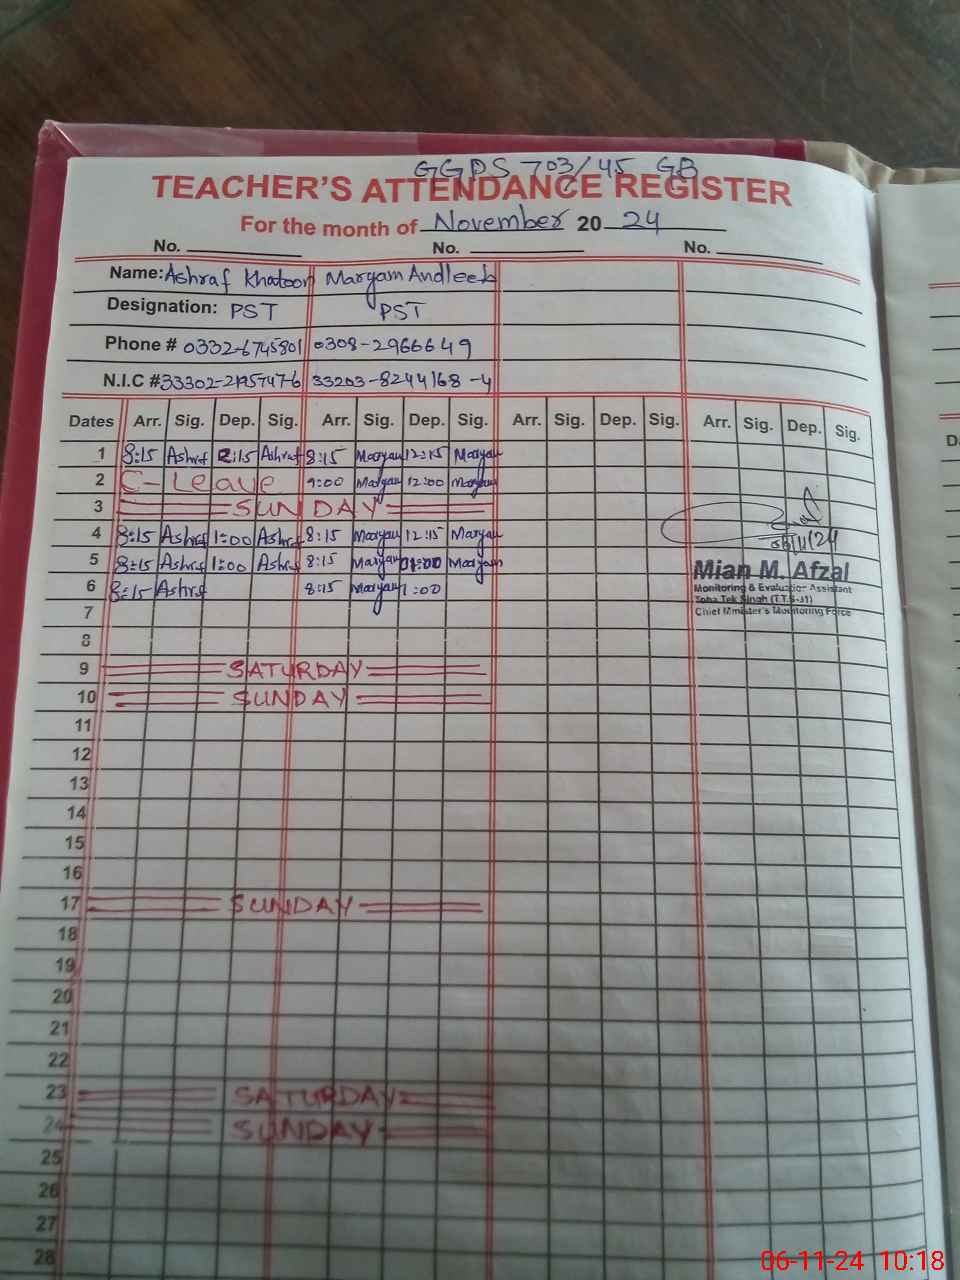 GGPS 703/45 GB
TEACHER'S ATTENDANCE REGISTER
For the month of November 20 24
No. No. No.
Name: Ashraf Khatoon Maryam Andleeb
Designation: PST PST
Phone # 0332-6745801 0308-2966649
N.I.C # 33302-2195747-6 33203-8244168-4
Dates Arr. Sig. Dep. Sig. Arr. Sig. Dep. Sig. Arr. Sig. Dep. Sig. Arr. Sig. Dep. Sig.
1 8:15 Ashraf 12:15 Ashraf 8:15 Maryam 12:15 Maryam
2 C-Leave 9:00 Maryam 12:00 Maryam
3 SUNDAY
4 8:15 Ashraf 1:00 Ashraf 8:15 Maryam 12:15 Maryam
06/11/24
5 8:15 Ashraf 1:00 Ashraf 8:15 Maryam 01:00 Maryam
Mian M. Afzal
6 8:15 Ashraf 8:15 Maryam 1:00
Monitoring & Evaluation Assistant
Toba Tek Singh (T.T.S-31)
7
Chief Minister's Monitoring Force
8
9 SATURDAY
10 SUNDAY
11
12
13
14
15
16
17 SUNDAY
18
19
20
21
22
23 SATURDAY
24 SUNDAY
25
26
27
28
06-11-24 10:18